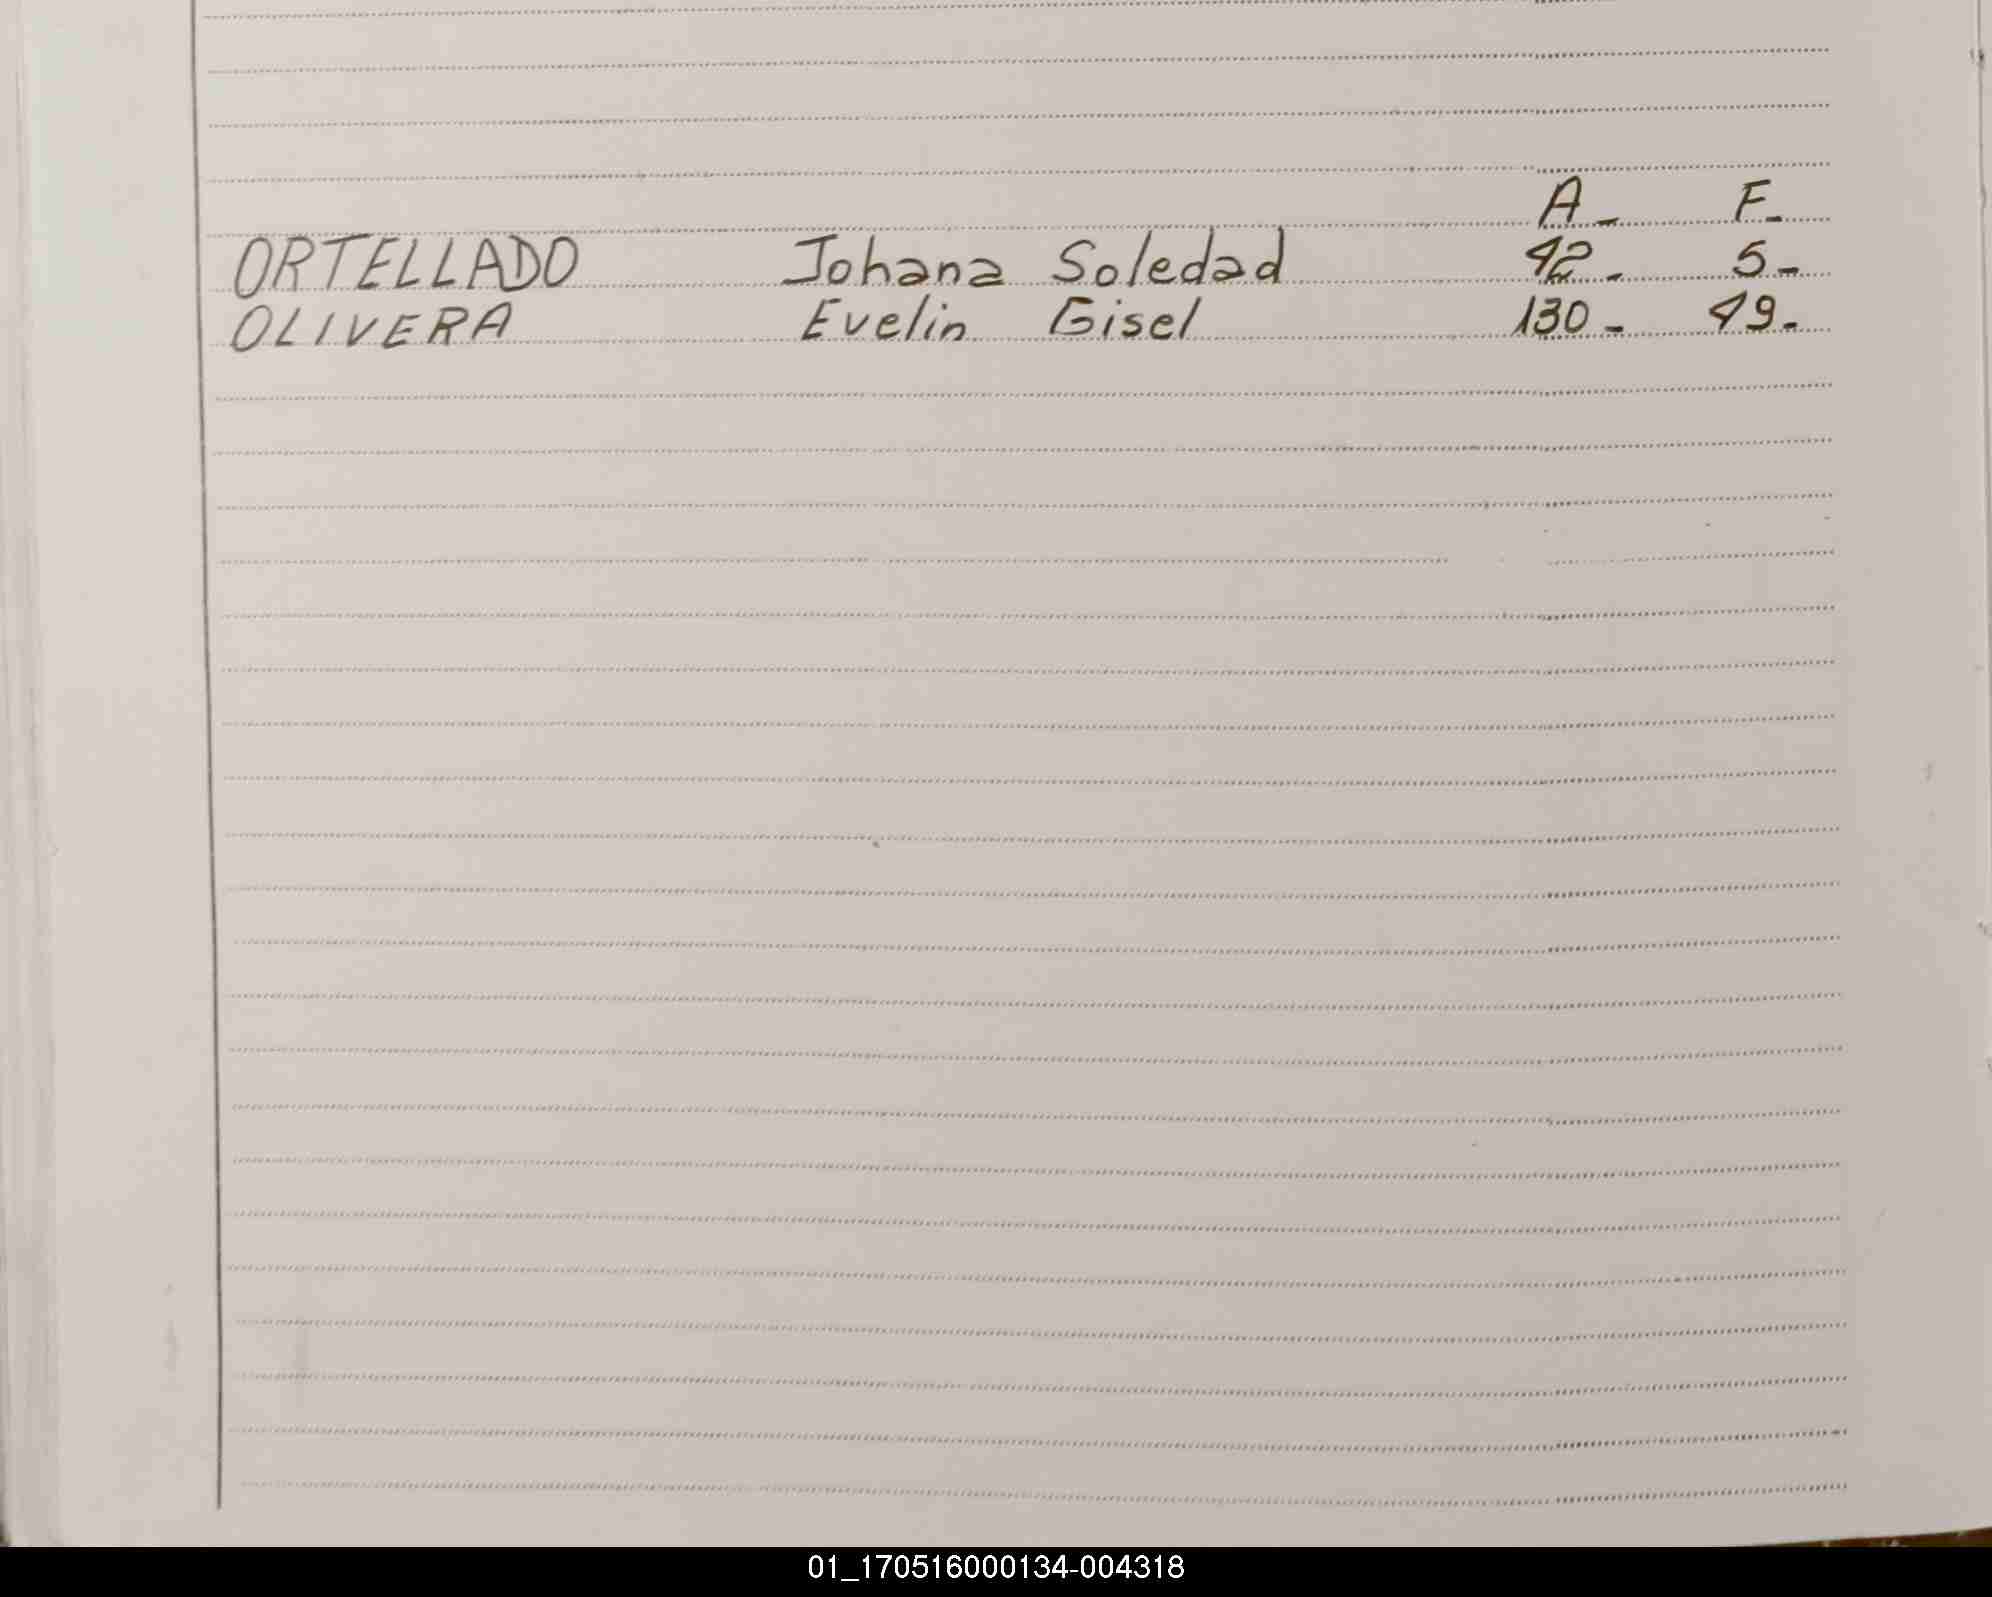 A- F-
ORTELLADO Johana Soledad 42- 5-
OLIVERA Evelin Gisel 130- 49-
01_170516000134-004318